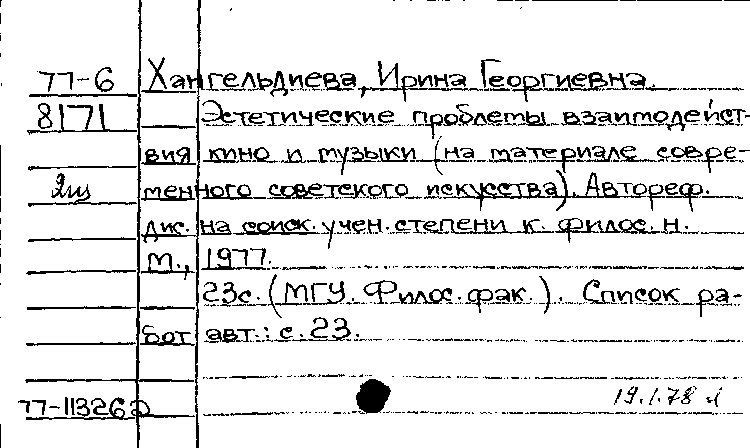 77-6 Хангельдиева, Ирина Георгиевна.
8171 Эстетические проблемы взаимодейст-
вия кино и музыки (на материале совре-
2 менного советского искусства). Автореф.
дис. на соиск. учен. степени к. филос. н.
М., 1977.
23с. (МГУ. Филос. фак.). Список ра-
бот авт.: с. 23.
77-11326 19.1.78